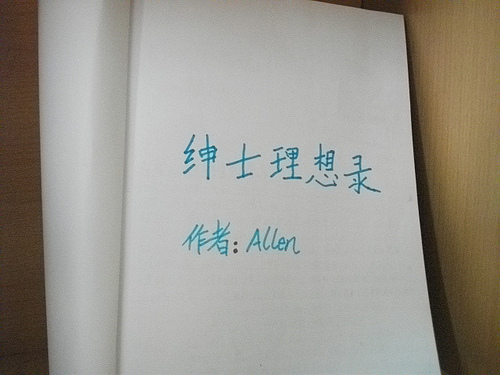 绅士理想录
作者: Allen